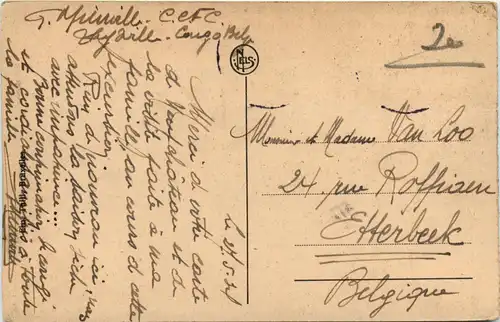 G. Minville. C.F.C.
Congo Belge
2e
NELS
Le 25.5.31
Merci de votre carte
de Neufchâteau et de
la visite faite à ma
famille au cours de cette
excursion.
Rien de nouveau ici, nous
attendons la saison sèche
avec impatience...
Bonne continuation, Rangi
et cordiales à toute
la famille
Monsieur et Madame Van Loo
24, rue Roffiaen
Etterbeek
Belgique